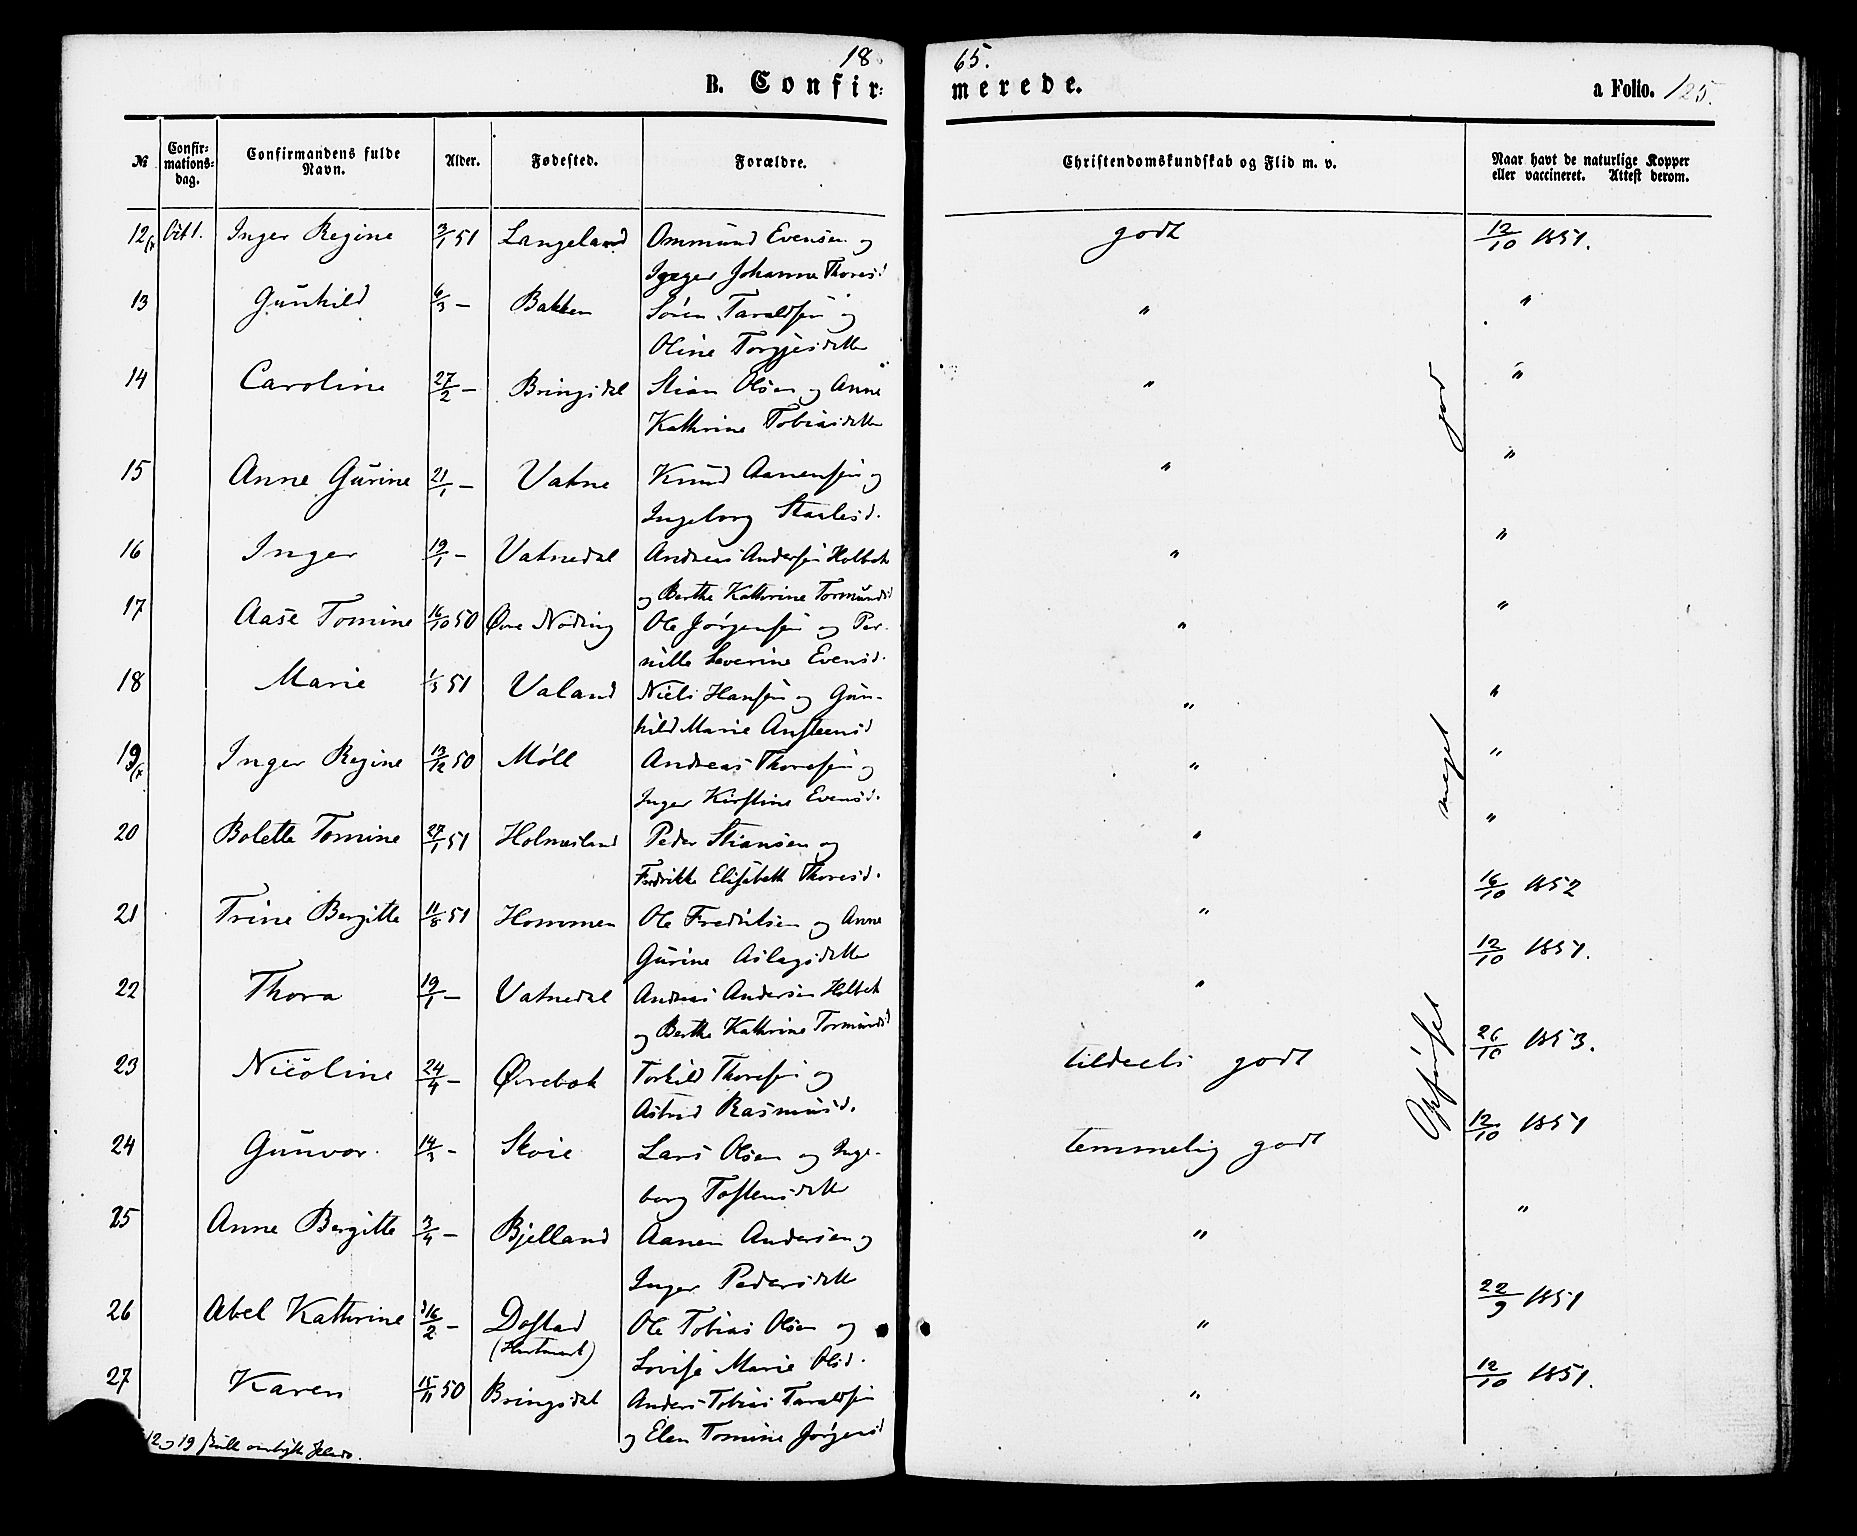 18 65.
B. Confir: merede. a Folio. 125.
№ Confir: mations: dag. Confirmandens fulde Navn. Alder. Fødested. Forældre. Christendomskundskab og Flid m. v. Naar havt de naturlige Kopper eller vaccineret. Attest derom.
12 Oct 1. Inger Regine 3/1 51 Langeland Ommund Evensen og godt 12/10 1851.
Inger Johanne Thoresd
13 Gunhild 6/3 — Bakken Sören Taraldsen og " "
Oline Torgjesdatter
14 Caroline 27/2 — Bringsdal Stian Olsen og Anne " "
Kathrine Tobiasdatter
15 Anne Gurine 21/1 — Vatne Knud Aanensen og " "
Ingeborg Starlesd.
16 Inger 19/1 — Vatnedal Andreas Andersen Holbek " "
og Berthe Kathrine Tormundsd
17 Aase Tomine 16/10 50 Øvre Nöding Ole Jörgensen og Per- " "
nille Severine Evensd.
18 Marie 1/3 51 Valand Niels Hansen og Gun- " "
hild Marie Anstensd
19 Inger Regine 13/12 50 Möll Andreas Thoresen og " "
Inger Kirstine Evensd.
20 Bolette Tomine 27/1 51 Holmesland Peder Stiansen og " "
Fredrikke Elisabeth Thoresd.
21 Trine Bergitte 11/8 51 Hommen Ole Fredriksen og Anne " 16/10 1852
Gurine Aslagsdatter
22 Thora 19/1 — Vatnedal Andreas Andersen Holbek " 12/10 1851.
og Berthe Kathrine Tormundsd
23 Nicoline 24/4 — Øvrebök Torkild Thoresen og tildeels godt 26/10 1853.
Astrid Rasmusd.
24 Gunvor 14/3 — Skoie Lars Olsen og Inge- temmelig godt 12/10 1851
borg Tostensdatter
25 Anne Bergitte 3/4 — Bjelland Aanen Andersen og " "
Inger Pedersdatter
26 Abel Kathrine 16/2 — Dostad Ole Tobias Olsen og " 22/9 1851
(Hartmark) Lovise Marie Olsd.
27 Karen 15/11 50 Bringsdal Anders Tobias Taraldsen " 12/10 1851.
og Elen Tomine Jörgensd
Opförsel meget god
12 og 19